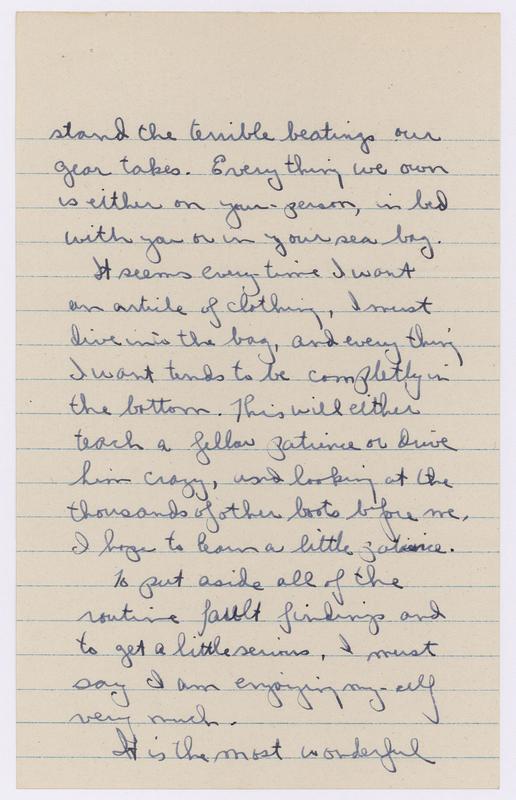 stand the terrible beatings our
gear takes. Every thing we own
is either on your-person, in bed
with you or in your sea bag.
It seems every time I want
an article of clothing, I must
dive into the bag, and every thing
I want tends to be completly in
the bottom. This will either
teach a fellow patience or drive
him crazy, and looking at the
thousands of other boots before me,
I hope to learn a little patience.
To put aside all of the
routine fault findings and
to get a little serious, I must
say I am enjoying my-self
very much.
It is the most wonderful